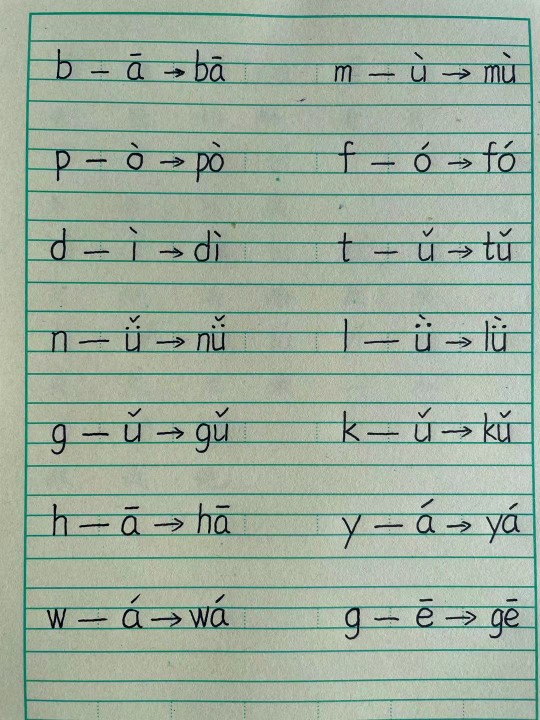 b — ā → bā m — ù → mù
p — ò → pò f — ó → fó
d — ì → dì t — ǔ → tǔ
n — ǚ → nǚ l — ǜ → lǜ
g — ǔ → gǔ k — ǔ → kǔ
h — ā → hā y — á → yá
w — á → wá g — ē → gē